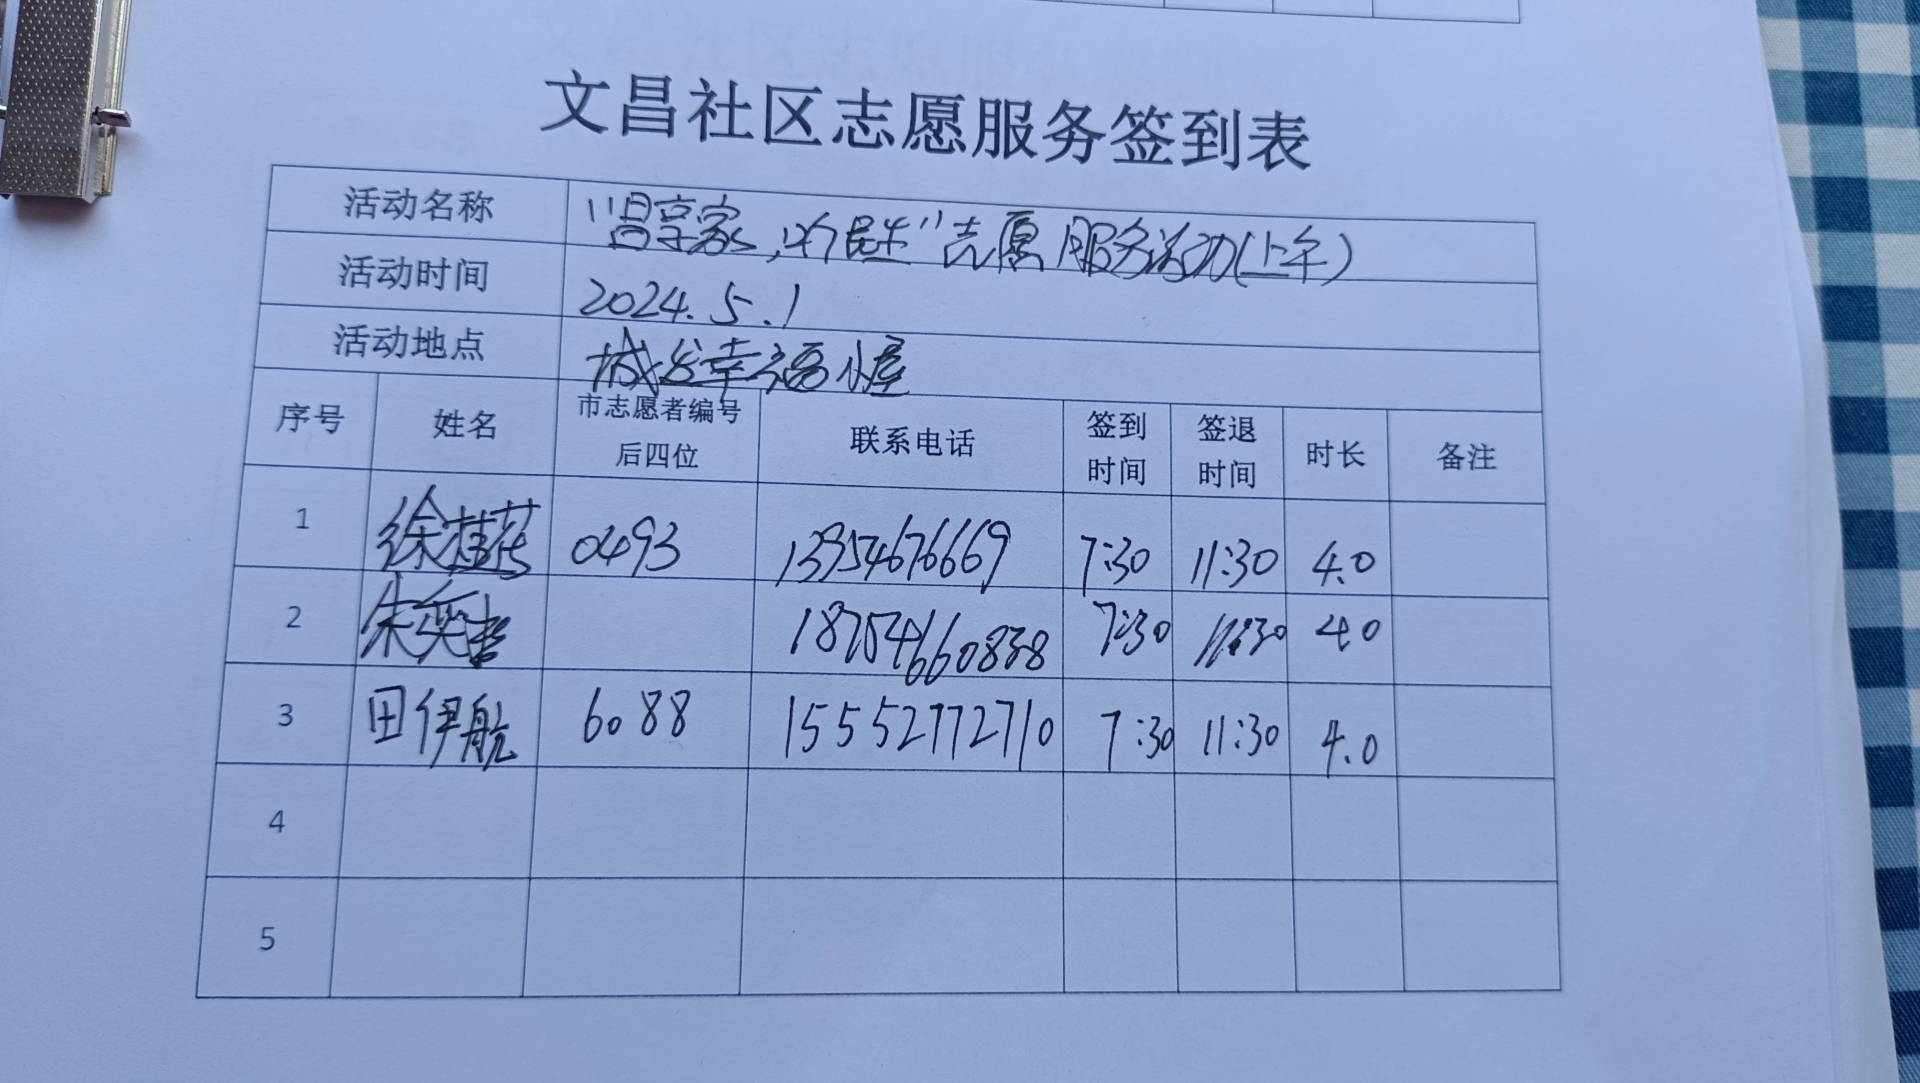 文昌社区志愿服务签到表
活动名称 "昌享家, 志愿服务活动(上午)
活动时间 2024.5.1
活动地点 城发幸福小屋
序号 姓名 市志愿者编号后四位 联系电话 签到时间 签退时间 时长 备注
1 徐桂花 0493 13954676669 7:30 11:30 4.0
2 朱奕哲 7:30 11:30 4.0
3 田伊航 6088 15552772710 7:30 11:30 4.0
4
5